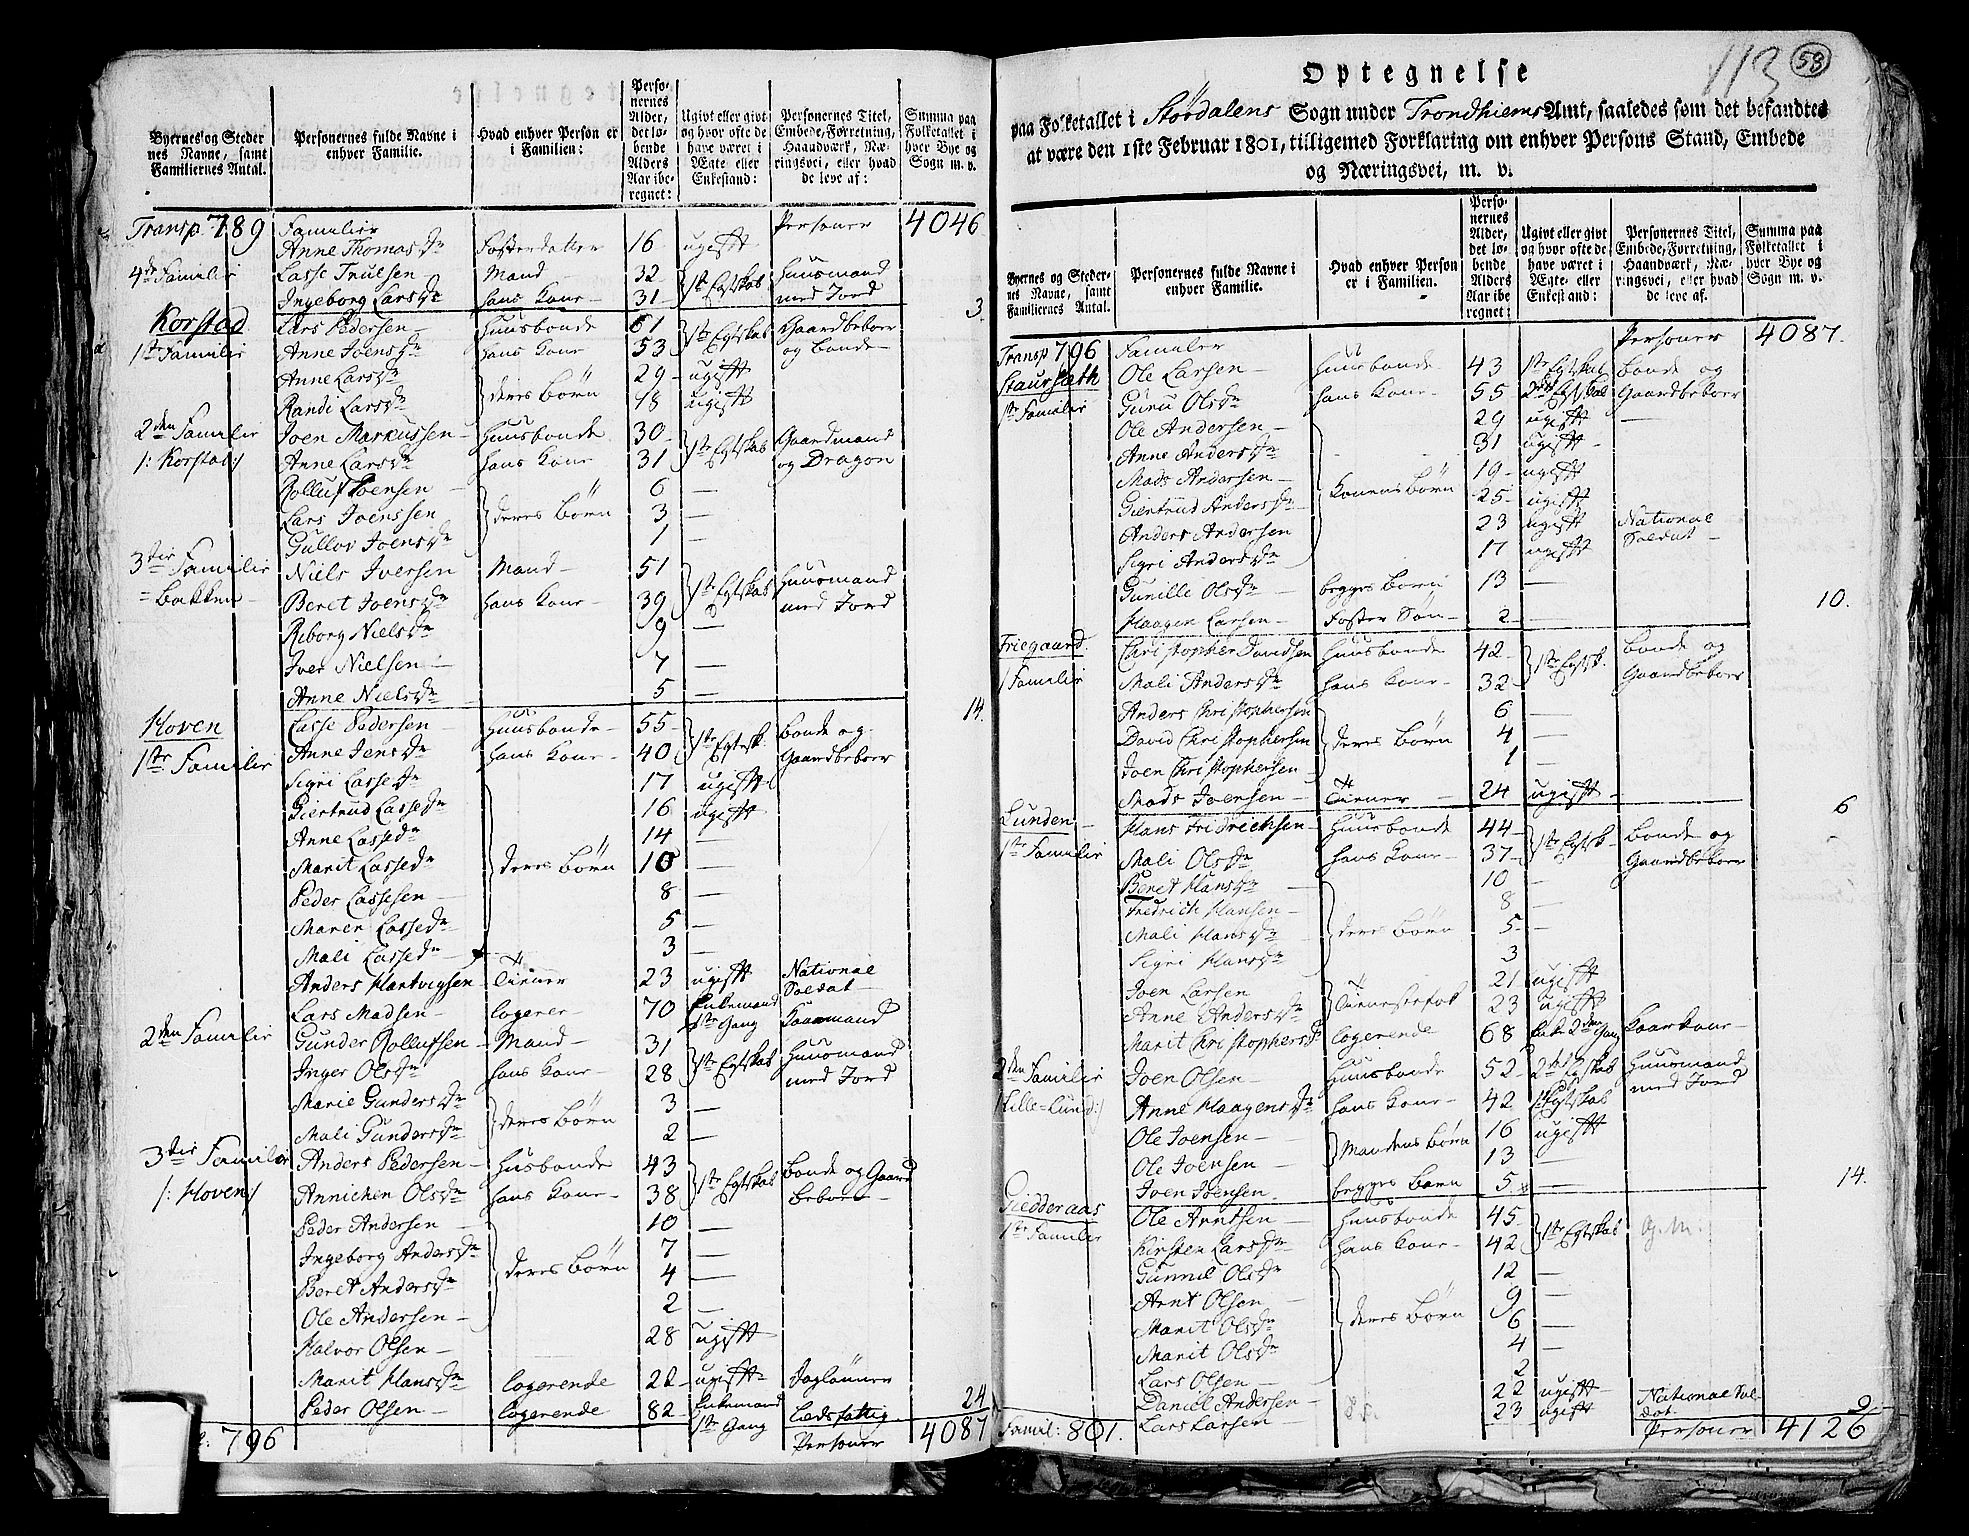 Byernes og Steder nes Navne, samt Familiernes Antal. | Personernes fulde Navne i enhver Familie. | Hvad enhver Person er i Familien: | Personernes Alder, det løbende Alders Aar iberegnet: | Ugivt eller givt og hvor ofte de have været i Ægte eller Enkestand: | Personernes Titel, Embede, Forretning, Haandværk, Næringsvei, eller hvad de leve af: | Summa paa Folketallet i hver Bye og Sogn m. v.
Transp. 789 Familier Personer 4046
Anne Thomasdr Fosterdatter 16 ugift
4de Familie Lasse Truelsen Mand 32 1ste Egtskab Huusmand
Ingeborg Larsdr hans Kone 31 med Jord 3.
Korstad Lars Pedersen Huusbonde 61 1ste Egtskab Gaardbeboer
1ste Familie Anne Joensdr hans Kone 53 og bonde
Anne Larsdr deres Börn 29 ugift
Randi Larsdr 18 ugift
2den Familie Joen Markussen Huusbonde 30 1ste Egtskab Gaardmand
/: Korstad:/ Anne Larsdr hans Kone 31 og Dragon
Rolluf Joensen deres Börn 6 —
Lars Joenssen 3 —
Gullov Joensdr 1 —
3die Familie Niels Iversen Mand 51 1ste Egtskab Huusmand
= Bakken Beret Joensdr hans Kone 39 med Jord
Riborg Nielsdr 9 —
Iver Nielsen 7 —
Anne Nielsdr 5 — 14.
Hoven Lasse Pedersen Huusbonde 55 1ste Egtsk. bonde og
1ste Familie Anne Jensdr hans Kone 40 Gaardbeboer
Sigri Lassedr 17 ugift
Giertrud Lassedr 16 ugift
Anne Lassedr 14 —
Marit Lassedr deres Börn 10 —
Peder Lassesen 8 —
Maren Lassedr 5 —
Mali Lassedr 3 —
Anders Hartvigsen Tiener 23 ugift National Soldat
Lars Madsen logerer 70 Enkemand 1ste Gang Kaarmand
2den Familie Gunder Rollufsen Mand 31 1ste Egtskab Huusmand
Inger Olsdr hans Kone 28 med Jord
Marie Gundersdr deres Börn 3 —
Mali Gundersdr 2 —
3die Familie Anders Pedersen Husbonde 43 1ste Egtskab bonde og Gaard
/: Hoven/ Annichen Olsdr hans Kone 38 beboer
Peder Andersen 10 —
Ingeborg Andersdr deres Börn 7 —
Beret Andersdr 4 —
Ole Andersen 2 —
Halvor Olsen 28 ugift
Marit Hansdr logerende 22 ugift Daglönner
Peder Olsen logerende 82 Enkemand 1ste Gang Ledsfattig 24
: 796 Personer 4087
113 58
Optegnelse
paa Folketallet i Stördalens Sogn under Trondhiems Amt, saaledes som det befandtes
at være den 1ste Februar 1801, tilligemed Forklaring om enhver Persons Stand, Embede
og Næringsvei, m. v.
Byernes og Stedernes Navne, samt Familiernes Antal. | Personernes fulde Navne i enhver Familie. | Hvad enhver Person er i Familien. | Personernes Alder, det løbende Alders Aar iberegnet: | Ugivt eller givt og hvor ofte de have været i Ægte- eller Enkestand: | Personernes Titel, Embede, Forretning, Haandværk, Næringsvei, eller hvad de leve af. | Summa paa Folketallet i hver Bye og Sogn m. v.
Transp 796 Familier Personer 4087.
Staursæth Ole Larsen Huusbonde 43 1ste Egtskab bonde og
1ste Familie Guru Olsdr hans Kone 55 2det Egtskab Gaardbeboer
Ole Andersen 29 ugift —
Anne Andersdr 31 ugift
Mads Andersen Konens Börn 19 ugift
Giertrud Andersdr 25 ugift
Anders Andersen 23 ugift National Soldat
Sigri Andersdr 17 ugift
Gunille Olsdr begges Börn 13 —
Haagen Larsen Foster Sön 2 — 10.
Friegaard Christopher Davidsen Huusbonde 42 1ste Egtsk. bonde og
1 Familie Mali Andersdr hans Kone 32 Gaardbeboer
Anders Christophersen deres Börn 6 —
David Christophersen 4 —
Joen Christophersen 1 —
Mads Joensen Tiener 24 ugift 6
Lunden Hans Fridrichsen Huusbonde 44 1ste Egtsk. bonde og
1ste Familie Mali Olsdr hans Kone 37 Gaardbeboer
Beret Hansdr 10 —
Fredrich Hansen 8 —
Mali Hansdr deres Börn 5 —
Sigri Hansdr 3
Joen Larsen Tienestefolk 21 ugift
Anne Andersdr 23 ugift
Marit Christophersdr logerende 68 Enke 2den Gang Kaarkone
2den Familie Joen Olsen Huusbonde 52 2det Egtskab Huusmand
/Lille=Lund:/ Anne Haagensdr hans Kone 42 1ste Egtskab med Jord
Ole Joensen Mandens Börn 16 ugift
Ole Joensen 13 —
Joen Joensen begges Barn 5 — 14.
Gieddeaas Ole Arntsen Huusbonde 45 1ste Egtskab G. M:
1ste Familie Kirsten Larsdr hans Kone 42
Gunnil Olsdr 12 —
Arnt Olsen 9 —
Marit Olsdr deres Börn 6 —
Marit Olsdr 4 —
Lars Olsen 2
Daniel Andersen 22 ugift National Soldat
Lars Larsen 23 ugift 9
Famil: 801. Personer 4126